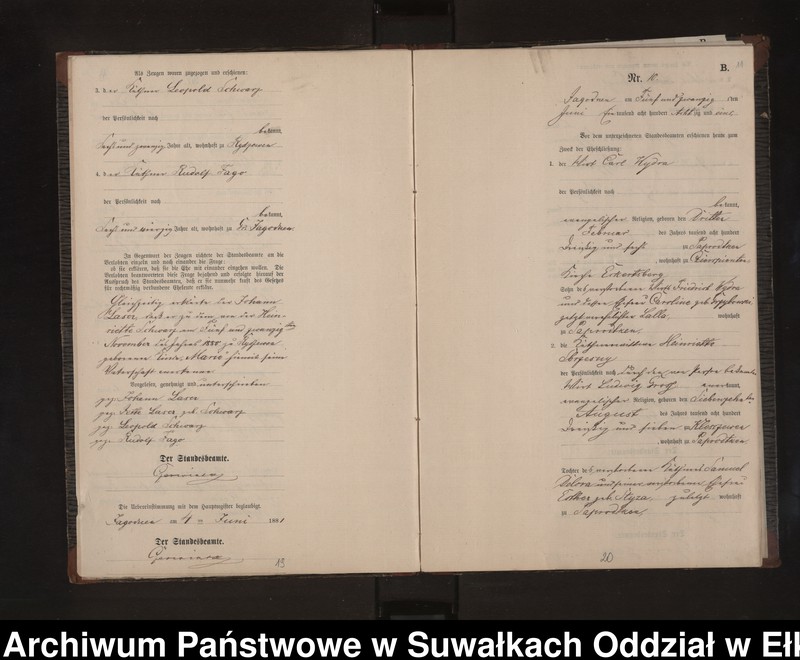 Als Zeugen waren zugezogen und erschienen:
3. der Käthner Leopold Schwarz
der Persönlichkeit nach
bekannt,
sechs und zwanzig Jahre alt, wohnhaft zu
4. der Käthner Rudolf Fago
der Persönlichkeit nach
bekannt,
sechs und vierzig Jahre alt, wohnhaft zu Gr. Jagodnen
In Gegenwart der Zeugen richtete der Standesbeamte an die
Verlobten einzeln und nach einander die Frage:
ob sie erklären, daß sie die Ehe mit einander eingehen wollen. Die
Verlobten beantworteten diese Frage bejahend und erfolgte hierauf der
Ausspruch des Standesbeamten, daß er sie nunmehr kraft des Gesetzes
für rechtmäßig verbundene Eheleute erkläre.
Gleichzeitig erklärte der Johann
Laser, daß er zu dem, von der Hein-
riette Schwarz am fünf und zwanzigsten
November des Jahres 1880 zu
geborenen Kinde, Marie hiermit seine
Vaterschaft anerkenne
Vorgelesen, genehmigt und unterschrieben
gez. Johann Laser
gez. Laser geb. Schwarz
gez. Leopold Schwarz
gez. Rudolf Fago
Der Standesbeamte.
Czerwinka
Die Uebereinstimmung mit dem Hauptregister beglaubigt.
Jagodnen am 4 ten Juni 1881
Der Standesbeamte.
Czerwinka
19
B.
Nr. 10.
Jagodnen am fünf und zwanzigsten
Juni tausend acht hundert achtzig und eins
Vor dem unterzeichneten Standesbeamten erschienen heute zum
Zweck der Eheschließung:
1. der Wirt Carl Wydra
der Persönlichkeit nach
bekannt,
evangelischer Religion, geboren den dritten
Februar des Jahres tausend acht hundert
dreißig und sechs zu Paprodtken
, wohnhaft zu
Kreise
Sohn des verstorbenen Wirts Friedrich Wydra
und dessen Ehefrau Caroline geb.
wohnhaft
zu Paprodtken
2. die Käthnerwittwe Heinriette
der Persönlichkeit nach durch den von Person bekannten
Wirt Ludwig anerkannt,
evangelischer Religion, geboren den siebzehnten
August des Jahres tausend acht hundert
dreißig und sieben zu
, wohnhaft zu Paprodtken
Tochter des verstorbenen Käthners Samuel
und seiner verstorbenen Ehefrau
Esther geb. zuletzt wohnhaft
zu Paprodtken
20
Archiwum Państwowe w Suwałkach Oddział w Ełk